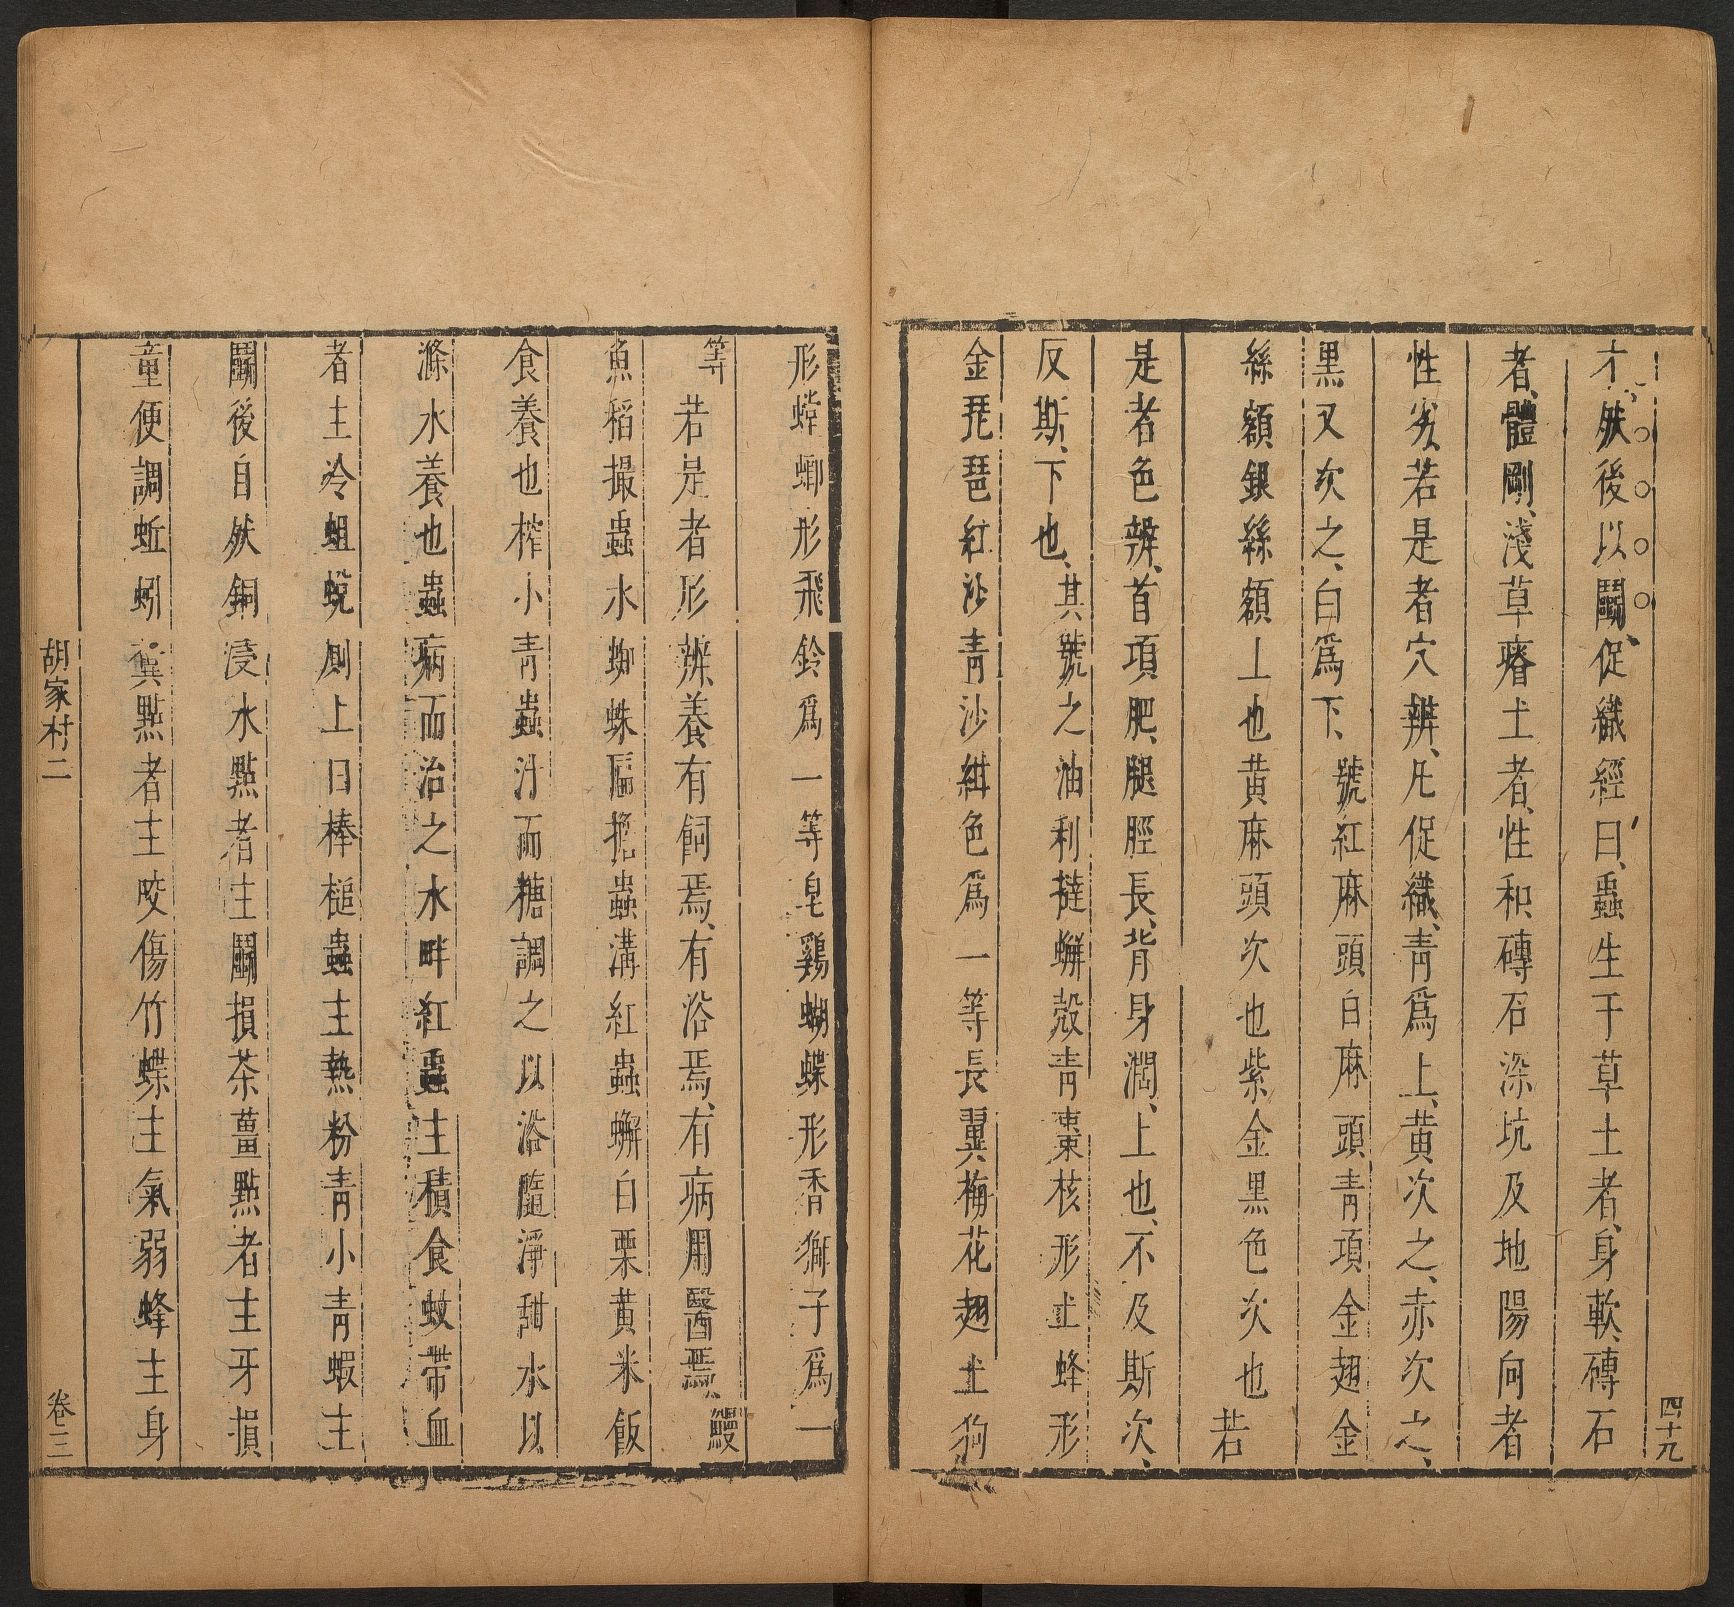 四十九
才然後以鬭促織經曰蟲生于草土者身軟磚石
者體剛淺草瘠土者性和磚石深坑及地陽向者
性劣若是者穴辨凡促織青爲上黃次之赤次之
黑又次之白爲下號紅麻頭白麻頭青項金翅金
絲額銀絲額上也黃麻頭次也紫金黑色次也若
是者色辨首項肥腿脛長背身濶上也不及斯次
反斯下也其號之油利撻蠏殼青棗核形土蜂形
金琵琶紅沙青沙紺色爲一等長翼梅花翅土狗
形螳螂形飛鈴爲一等皂鷄蝴蝶形香獅子爲一
等若是者形辨養有飼焉有浴焉有病用醫焉鰻
魚稻撮蟲水蜘蛛匾擔蟲溝紅蟲蠏白栗黃米飯
食養也榨小青蟲汁而糖調之以浴隨淨甜水以
滌水養也蟲病而治之水畔紅蟲主積食蚊帶血
者主冷蛆蛻厠上曰棒槌蟲主熱粉青小青蝦主
鬭後自然銅浸水點者主鬭損茶薑點者主牙損
童便調蚯蚓糞點者主咬傷竹蝶主氣弱蜂主身
胡家村二
卷三